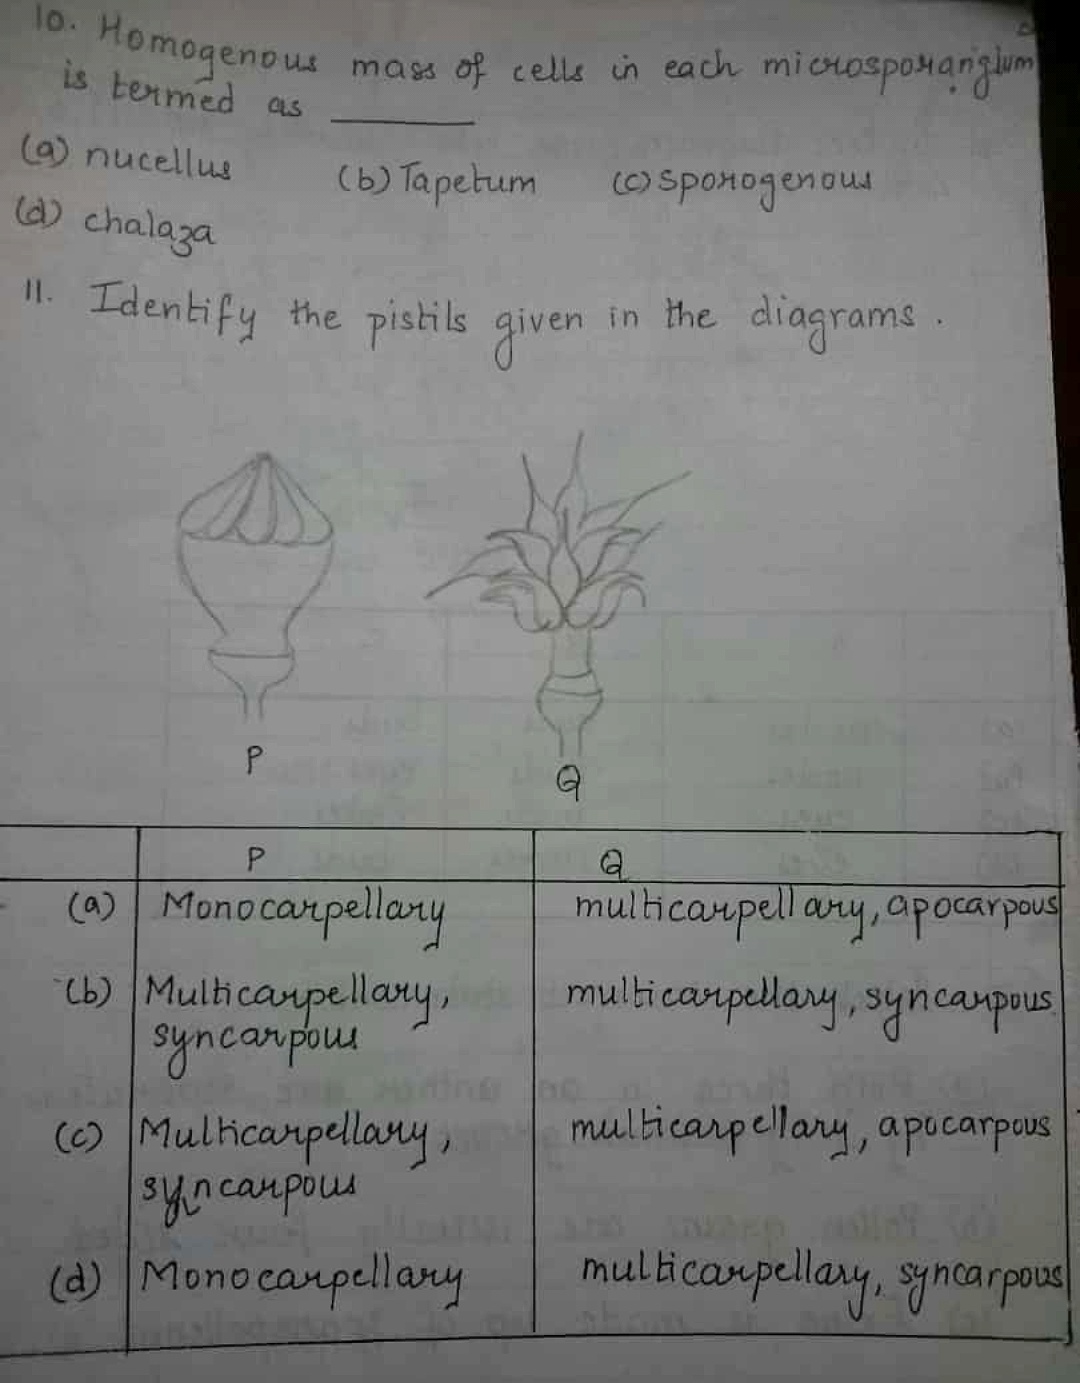 10. Homogenous mass of cells in each microsporangium
is termed as ______
(a) nucellus (b) Tapetum (c) sporogenous
(d) chalaza
11. Identify the pistils given in the diagrams.
P
Q
P Q
(a) Monocarpellary multicarpellary, apocarpous
(b) Multicarpellary, multicarpellary, syncarpous
syncarpous
(c) Multicarpellary, multicarpellary, apocarpous
syncarpous
(d) Monocarpellary multicarpellary, syncarpous